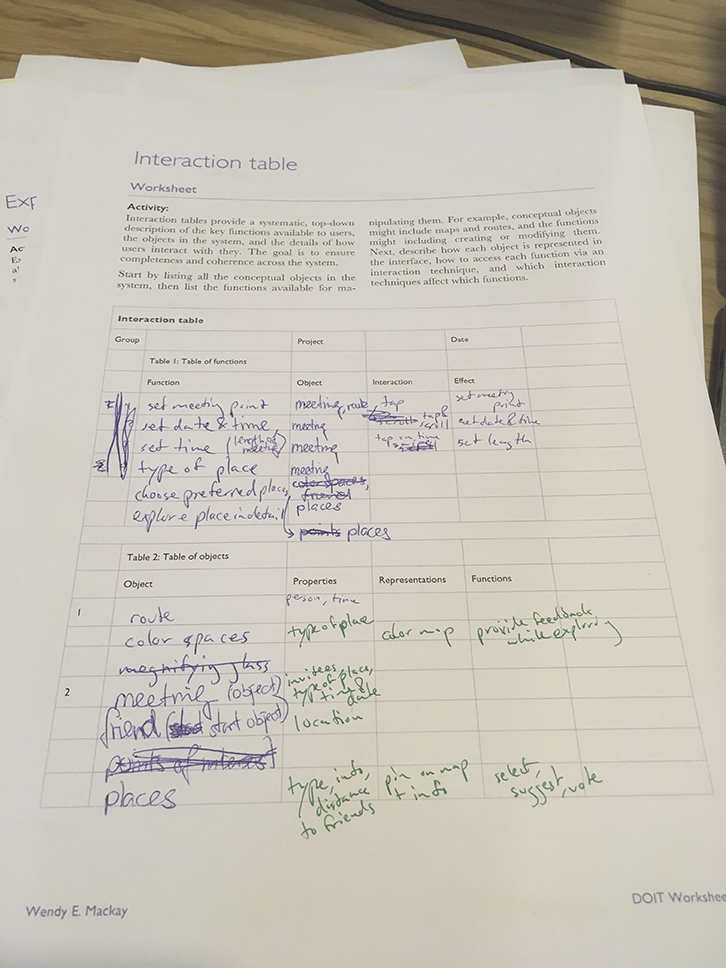 Interaction table
Worksheet
Activity:
Interaction tables provide a systematic, top-down
description of the key functions available to users,
the objects in the system, and the details of how
users interact with they. The goal is to ensure
completeness and coherence across the system.
Start by listing all the conceptual objects in the
system, then list the functions available for ma-
nipulating them. For example, conceptual objects
might include maps and routes, and the functions
might including creating or modifying them.
Next, describe how each object is represented in
the interface, how to access each function via an
interaction technique, and which interaction
techniques affect which functions.
Interaction table
Group Project Date
Table 1: Table of functions
Function Object Interaction Effect
set meeting point meeting, route, tap set meeting point
set date & time, meeting tap & scroll set date & time
set time (length of meeting) meeting tap on time set length
type of place meeting
choose preferred places, color spaces, friend
explore place in detail places
points places
Table 2: Table of objects
Object Properties Representations Functions
1 route person, time
color spaces type of place color map provide feedback while exploring
magnifying glass
2 meeting (object) invitees, type of place, time & date
friend (start object) location
points of interest
places type, info, distance to friends pin on map + info select, suggest, vote
Wendy E. Mackay
DOIT Workshee
EXP
Wo
Ac